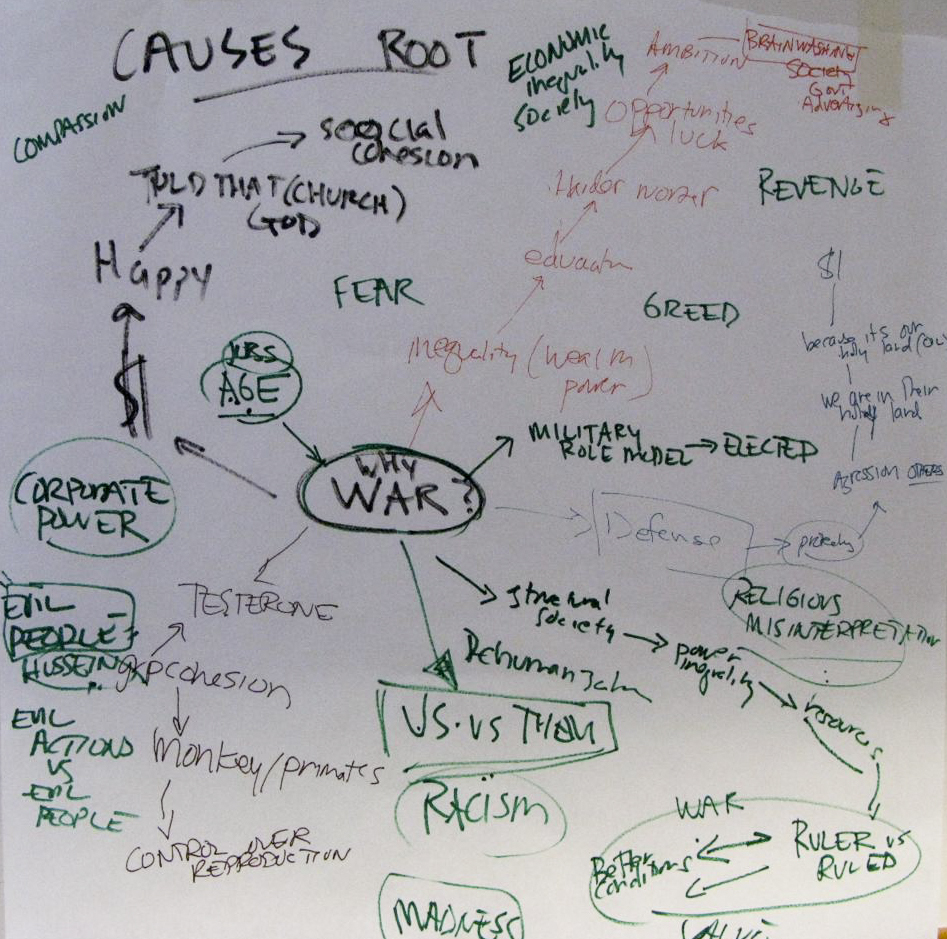 CAUSES ROOT
COMPASSION
ECONOMIC
inequality
society
AMBITION
BRAINWASHING
SOCIETY
GOVT
Advertizing
Opportunities
luck
Harder worker
education
inequality (wealth
power)
REVENGE
social
cohesion
TOLD THAT (CHURCH)
GOD
Happy
$
FEAR
GREED
$
because it's our
holy land (OIL
we are in their
holy land
AGRESSION OTHERS
AGE
WHY
WAR?
MILITARY
ROLE MODEL → ELECTED
CORPORATE
POWER
Defense
RELIGIOUS
MISINTERPRETATION
TESTERONE
EVIL
PEOPLE?
HUSSEIN
cohesion
monkey/primates
CONTROL OVER
REPRODUCTION
EVIL
ACTIONS
VS
EVIL
PEOPLE
structural
society
power
inequality
resources
Dehumanization
US. vs THEM
RACISM
MADNESS
WAR
Better
conditions
RULER vs
RULED